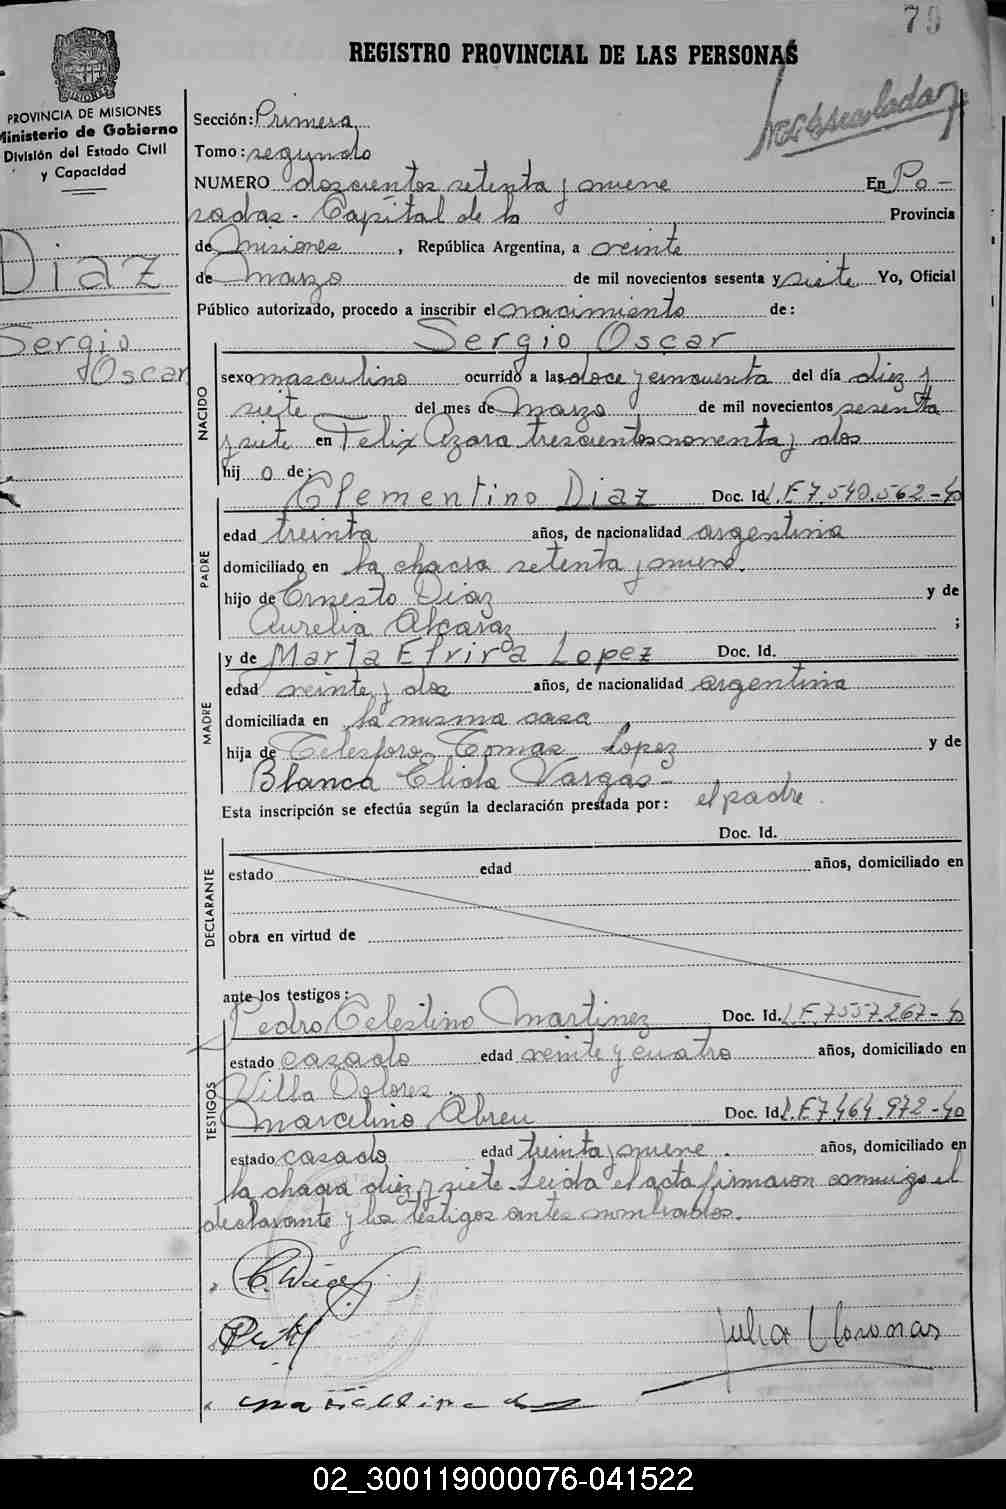 79
REGISTRO PROVINCIAL DE LAS PERSONAS
PROVINCIA DE MISIONES
Ministerio de Gobierno
División del Estado Civil
y Capacidad
Diaz
Sergio
Oscar
Sección: Primera
Tomo: segundo
NUMERO doscientos setenta y nueve En Po-
sadas - Capital de la Provincia
de Misiones, República Argentina, a veinte
de Marzo de mil novecientos sesenta y siete Yo, Oficial
Público autorizado, procedo a inscribir el nacimiento de:
Sergio Oscar
NACIDO
sexo masculino ocurrido a las doce y cincuenta del día diez y
siete del mes de Marzo de mil novecientos sesenta
y siete en Felix Azara trescientos noventa y dos
hij o de:
PADRE
Clementino Diaz Doc. Id. L.E 7.540.562-40
edad treinta años, de nacionalidad argentina
domiciliado en la chacra setenta y nueve.
hijo de Ernesto Diaz y de
Aurelia Alcaraz ;
MADRE
y de Marta Elvira Lopez Doc. Id.
edad veinte y dos años, de nacionalidad argentina
domiciliada en la misma casa
hija de Telesforo Tomas Lopez y de
Blanca Elida Vargas -
Esta inscripción se efectúa según la declaración prestada por: el padre.
DECLARANTE
Doc. Id.
estado edad años, domiciliado en
obra en virtud de
ante los testigos:
TESTIGOS
Pedro Celestino Martinez Doc. Id. L.E. 7557.267-40
estado casado edad veinte y cuatro años, domiciliado en
Villa Dolores.
Marcelino Abreu Doc. Id. L.E 7.464.972-40
estado casado edad treinta y nueve. años, domiciliado en
la chacra diez y siete. Leida el acta firmaron conmigo el
declarante y los testigos antes nombrados.
C. Diaz
Julia
02_300119000076-041522